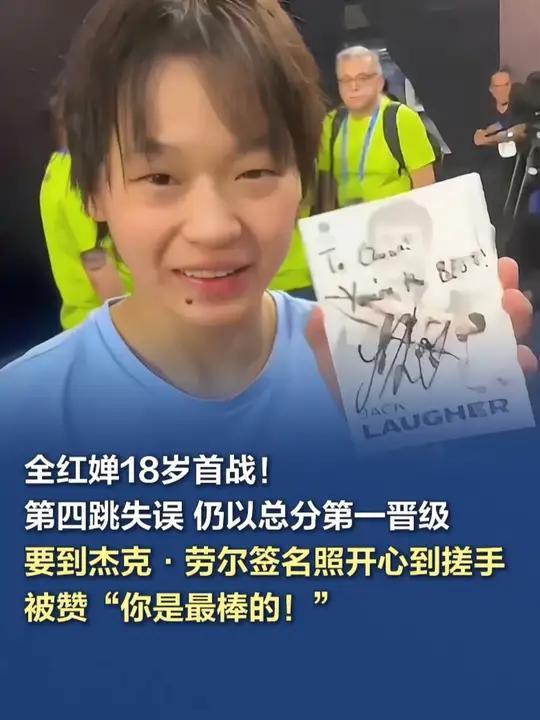 To Chan!
You're the BEST!
JACK
LAUGHER
全红婵18岁首战！
第四跳失误 仍以总分第一晋级
要到杰克·劳尔签名照开心到搓手
被赞“你是最棒的！”